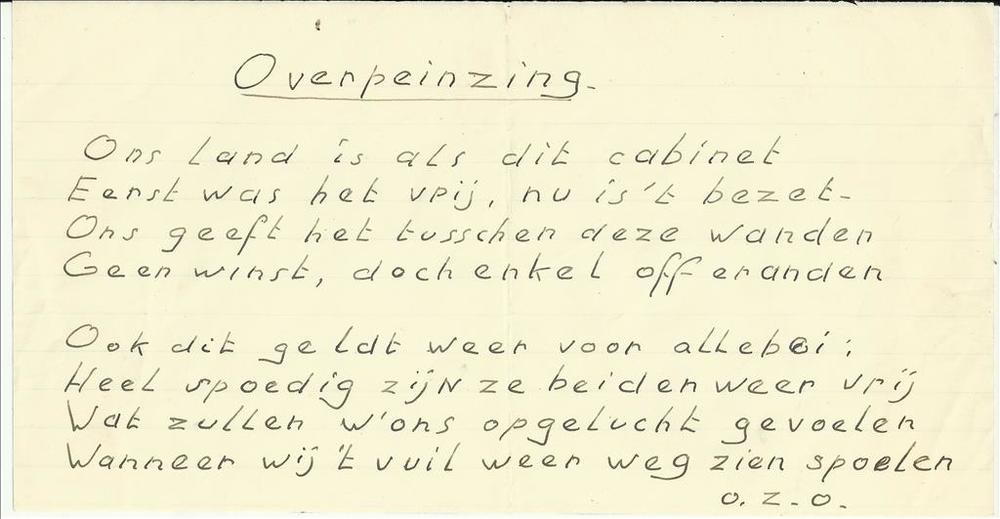 Overpeinzing.
Ons land is als dit cabinet
Eerst was het vrij, nu is 't bezet-
Ons geeft het tusschen deze wanden
Geen winst, doch enkel offeranden
Ook dit geldt weer voor allebei;
Heel spoedig zijn ze beiden weer vrij
Wat zullen w'ons opgelucht gevoelen
Wanneer wij 't vuil weer weg zien spoelen
o. z. o.